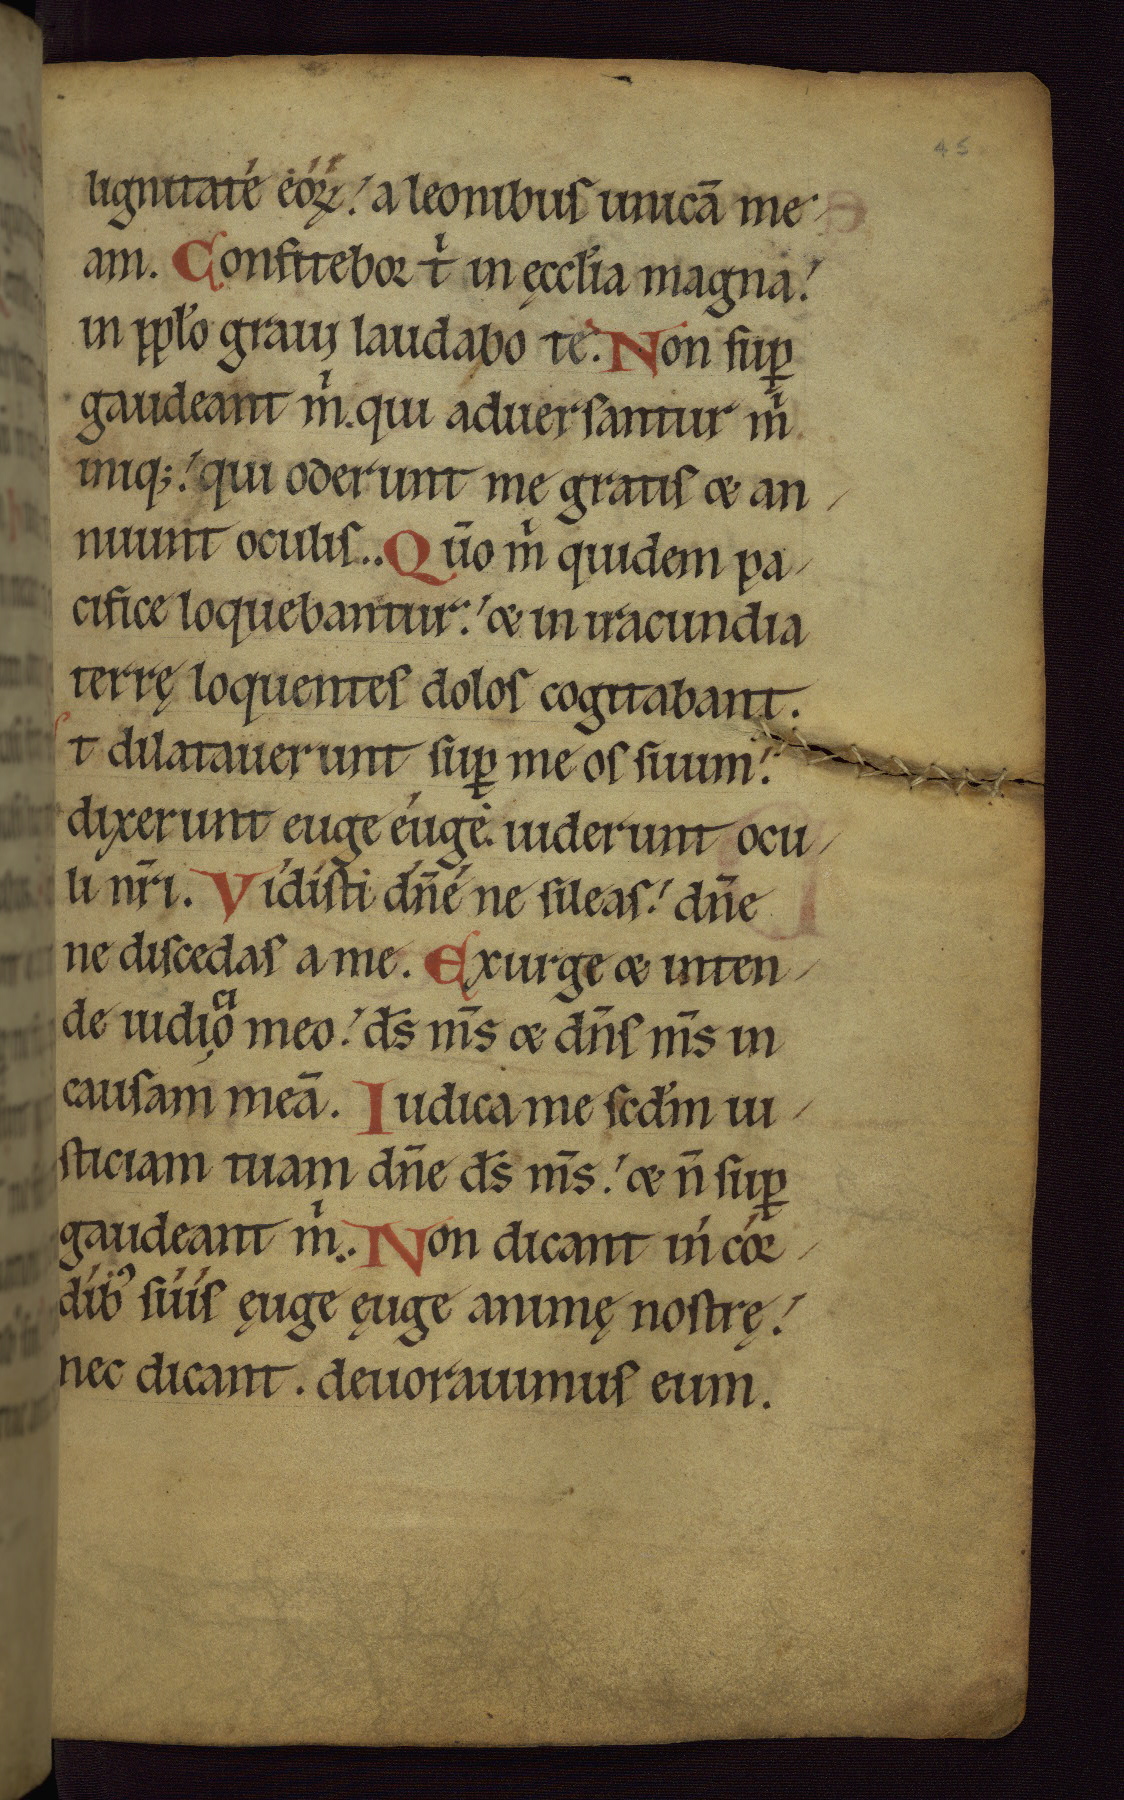 45
lignitate eoꝝ: a leonibus unicā me-
am. Confitebor t̍ in ęccl̃ia magna:
in ppl̃o graui laudabo te. Non sup̱
gaudeant m̍. qui aduersantur m̍
iniq;: qui oderunt me gratis & an-
nuunt oculis.. Qūo m̍ quidem pa-
cifice loquebantur: & in iracundia
terrę loquentes dolos cogitabant.
t dilatauerunt sup̱ me os suum:
dixerunt euge euge uiderunt ocu-
li nr̄i. Vidisti dn̄e ne sileas: dn̄e
ne discedas a me. Exurge & inten-
de iudiciō meo: ds̄ ms̄ & dn̄s ms̄ in
causam meā. Iudica me scdm̄ iu-
sticiam tuam dn̄e ds̄ ms̄: & n̄ sup̱
gaudeant m̍.. Non dicant in cor-
dibꝰ suis ęuge ęuge animę nostrę:
nec dicant. deuorauimus eum.